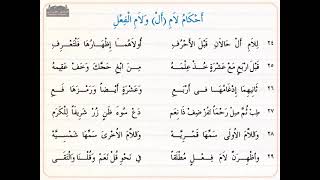 أَحْكَامُ لَامِ (أَلْ) وَلَامِ الْفِعْلِ
٢٤ لِلَامِ أَلْ حَالَانِ قَبْلَ الْأَحْرُفِ أُولَاهُمَا إِظْهَارُهَا فَلْتَعْرِفِ
٢٥ قَبْلَ ارْبَعٍ مَعْ عَشْرَةٍ خُذْ عِلْمَهُ مِنَ ابْغِ حَجَّكَ وَخَفْ عَقِيمَهُ
٢٦ ثَانِيهِمَا إِدْغَامُهَا فِي أَرْبَعِ وَعَشْرَةٍ أَيْضًا وَرَمْزَهَا فَعِ
٢٧ طِبْ ثُمَّ صِلْ رَحْمًا تَفُزْ ضِفْ ذَا نِعَمْ دَعْ سُوءَ ظَنٍّ زُرْ شَرِيفًا لِلْكَرَمِ
٢٨ وَاللَّامُ الْأُولَى سَمِّهَا قَمَرِيَّهْ وَاللَّامُ الْأُخْرَى سَمِّهَا شَمْسِيَّهْ
٢٩ وَأَظْهِرَنَّ لَامَ فِعْلٍ مُطْلَقًا فِي نَحْوِ قُلْ نَعَمْ وَقُلْنَا وَالْتَقَى